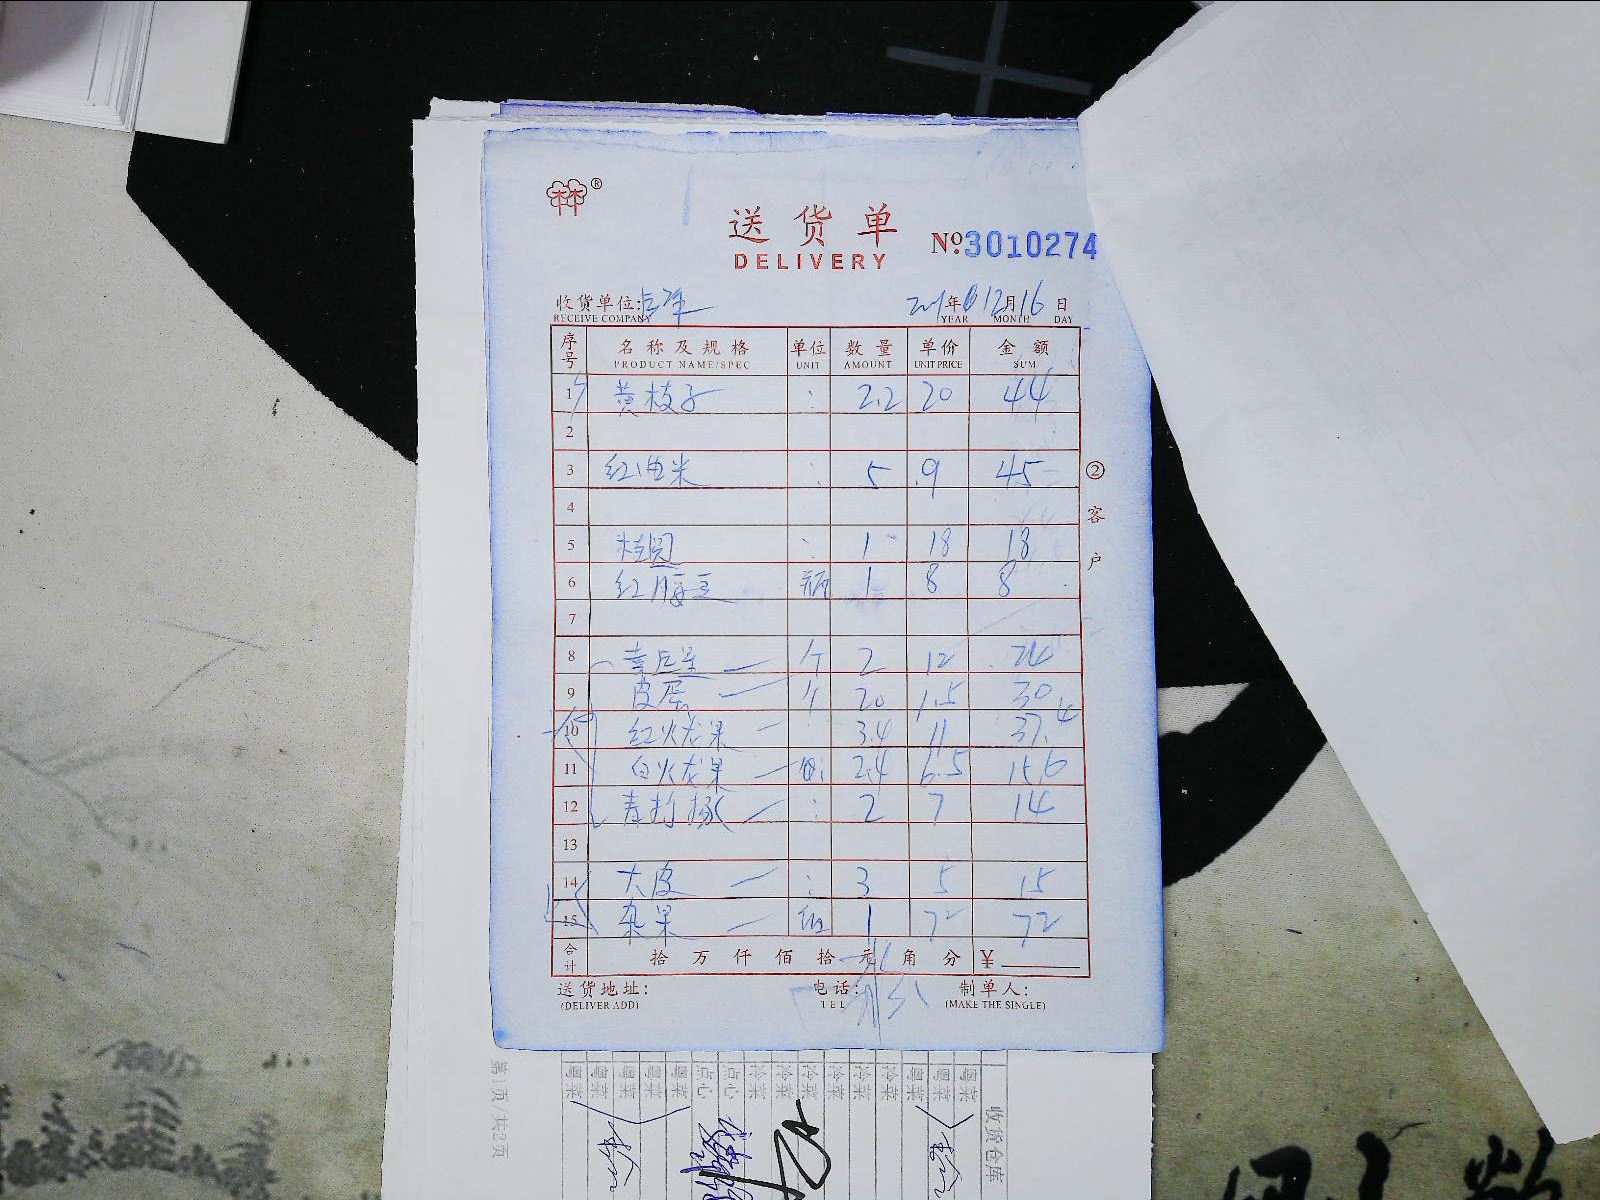 林®
送货单
DELIVERY
№3010274
收货单位:
RECEIVE COMPANY
年12月16日
YEAR MONTH DAY
序号 名称及规格 单位 数量 单价 金额
PRODUCT NAME/SPEC UNIT AMOUNT UNIT PRICE SUM
1 黄枝子 : 2.2 20 44
2
3 红曲米 : 5 9 45
4
5 桂圆 : 1 18 18
6 红腰豆 瓶 1 8 8
7
8 个 2 12 24
9 皮蛋 个 20 1.5 30
10 红火龙果 3.4 11 37.4
11 白火龙果 2.4 6.5 15.6
12 : 2 7 14
13
14 大皮 : 3 5 15
15 杂果 1 72 72
合计 拾 万 仟 佰 拾 元 角 分 ¥
送货地址: 电话: 制单人:
(DELIVER ADD) TEL (MAKE THE SINGLE)
②客户
收货仓库
粤菜
粤菜
粤菜
冷菜
冷菜
冷菜
冷菜
冷菜
点心
点心
粤菜
粤菜
粤菜
粤菜
粤菜
第1页/共2页